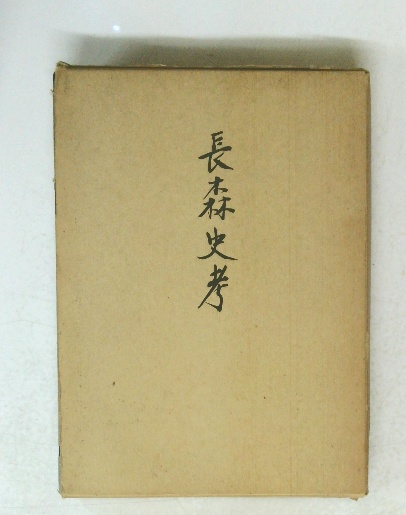 長森史考